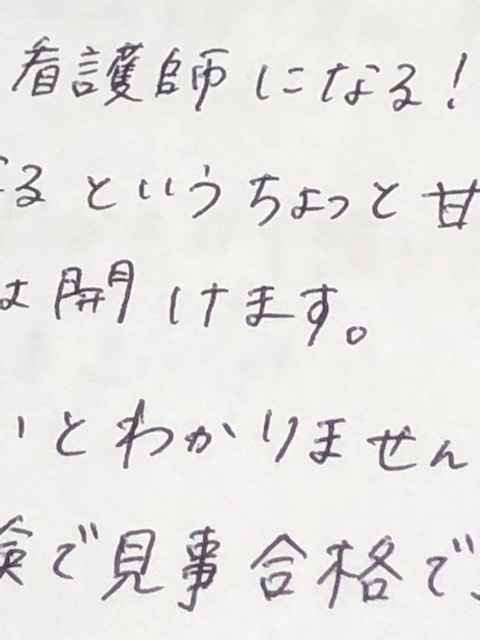 看護師になる!
るというちょっと甘
は開けます。
いとわかりません
験で見事合格で